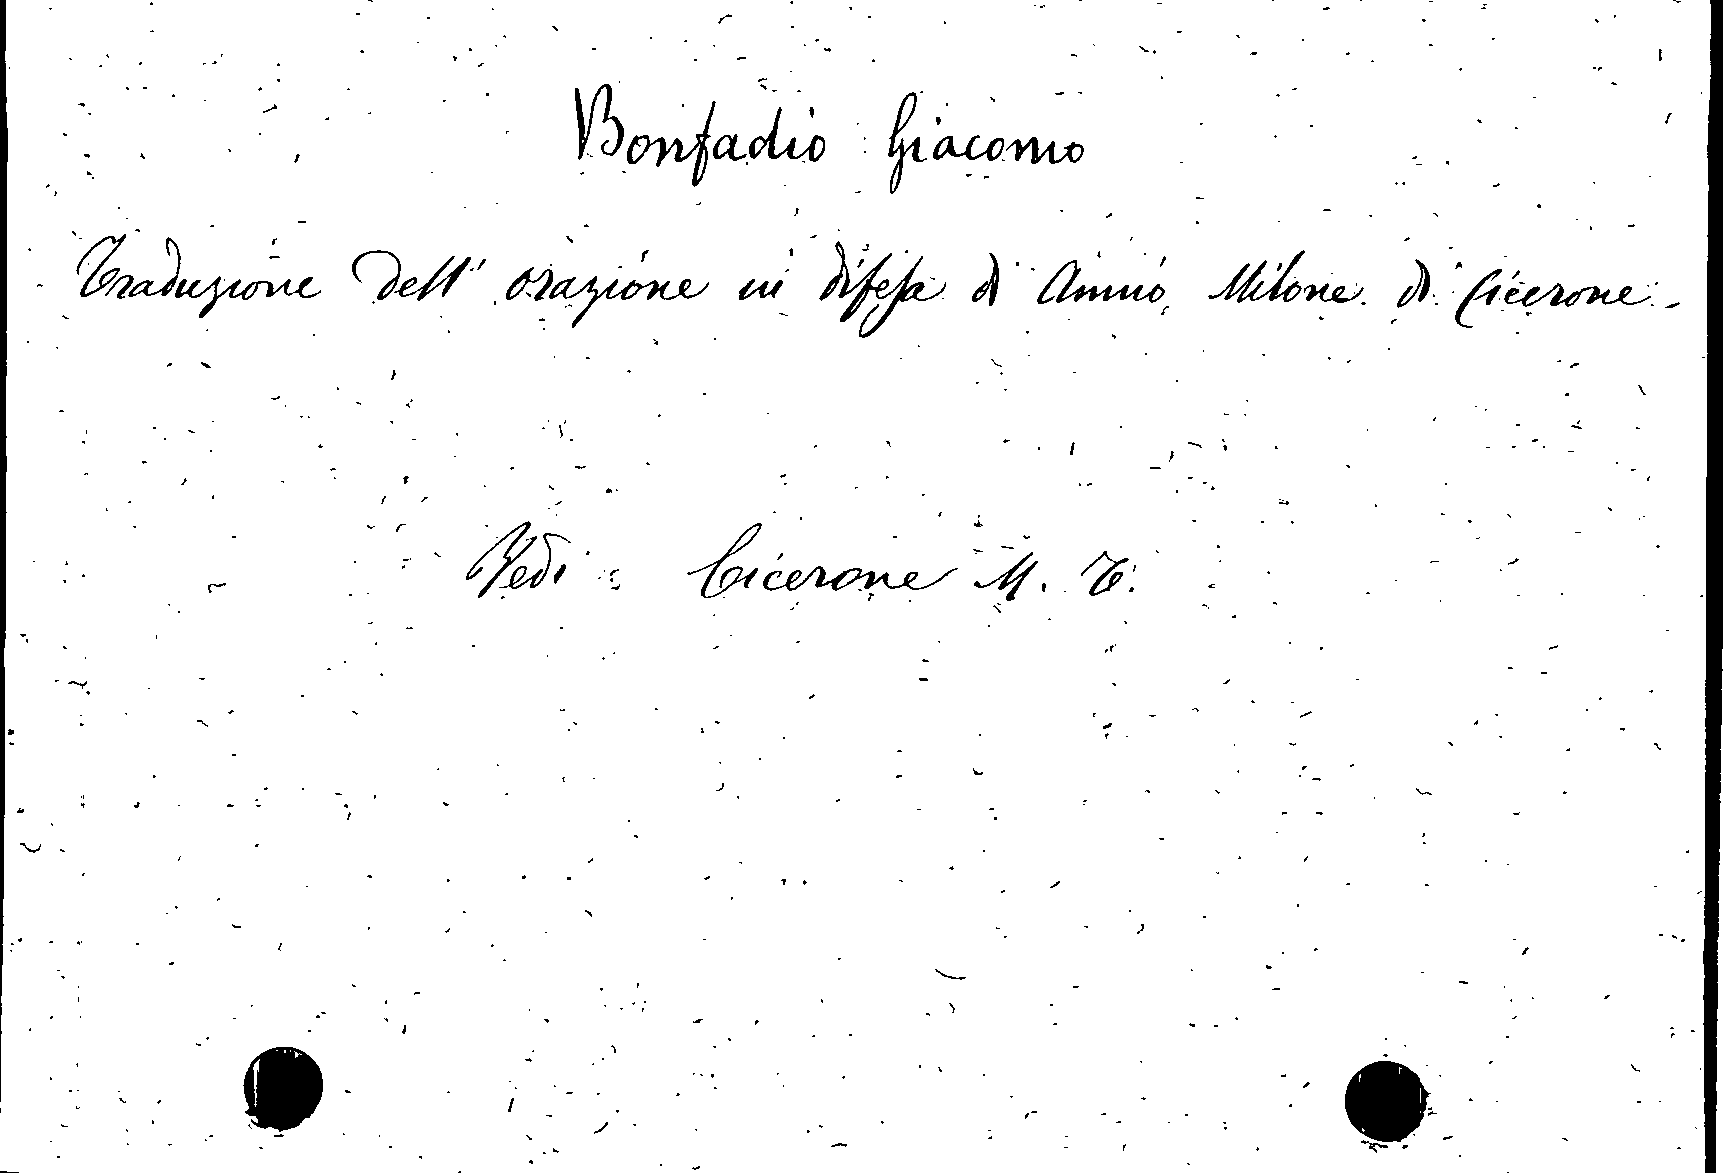 Bonfadio Giacomo
Traduzione dell' orazione in difesa di Annio Milone di Cicerone.
Vedi: Cicerone M. T.